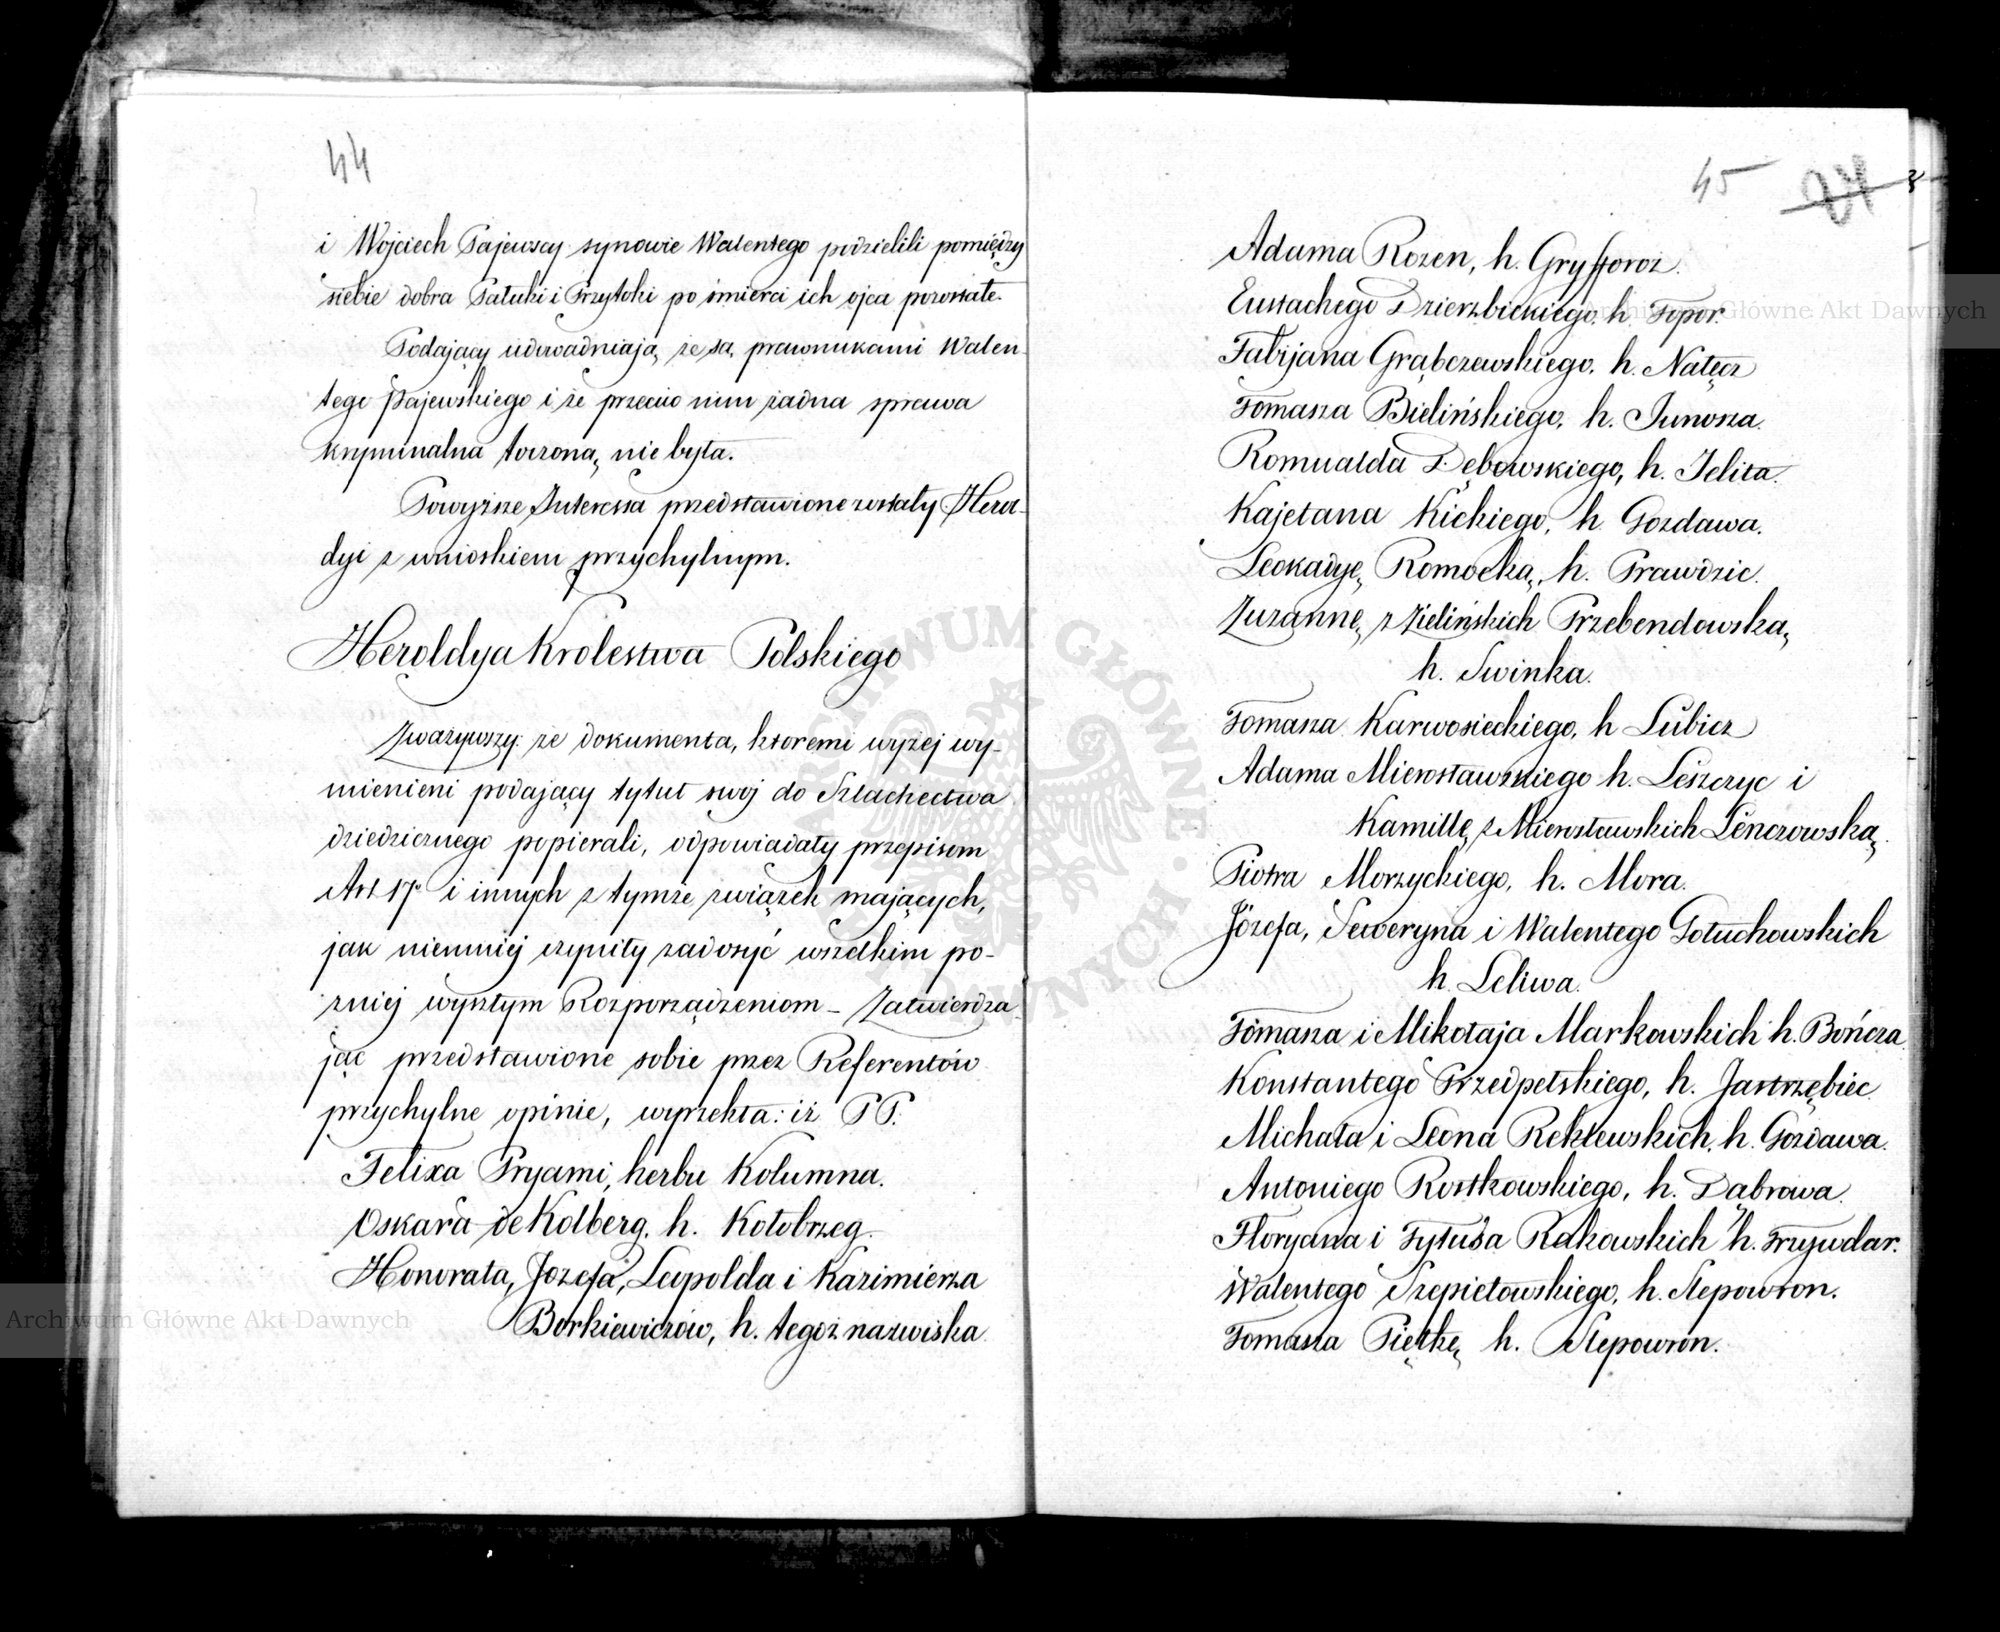 44
i Wojciech Pajewscy synowie Walentego podzielili pomiędzy
siebie dobra Pałuki i Przytoki po śmierci ich ojca pozostałe.
Podający udowadniają, że są prawnukami Walen-
tego Pajewskiego i że przeciw nim żadna sprawa
kryminalna toczoną nie była.
Powyższe Interessa przedstawione zostały Herol-
dyi z wnioskiem przychylnym.
Heroldya Krolestwa Polskiego
Zważywszy: że dokumenta, ktoremi wyżej wy-
mienieni podający tytuł swoj do Szlachectwa
dziedzicznego popierali, odpowiadały przepisom
Art 17º i innych z tymże związek mających,
jak niemniej czyniły zadosyć wszelkim po-
zniej wyszłym Rozporządzeniom – Zatwierdza-
jąc przedstawione sobie przez Referentów
przychylne opinie, wyrzekła: iż PP.
Felixa Pryami, herbu Kolumna.
Oskara de Kolberg, h. Kołobrzeg.
Honorata, Jozefa, Leopolda i Kazimierza
Borkiewiczów, h. tegoż nazwiska.
45
24
Adama Rozen, h. Gryfforoż.
Eustachego Dzierzbickiego, h. Topor.
Fabijana Grąbczewskiego, h. Nałęcz
Tomasza Bielińskiego, h. Junosza.
Romualda Dębowskiego, h. Jelita.
Kajetana Kickiego, h. Gozdawa.
Leokadyę Romocką, h. Prawdzic.
Zuzannę z Zielińskich Przebendowską,
h. Swinka.
Tomasza Karwosieckiego, h Lubicz
Adama Mierosławskiego h. Leszczyc i
Kamillę z Mierosławskich Lenczowską.
Piotra Morzyckiego, h. Mora.
Józefa, Seweryna i Walentego Gołuchowskich
h. Leliwa.
Tomasza i Mikołaja Markowskich h. Bończa
Konstantego Przedpełskiego, h. Jastrzębiec.
Michała i Leona Rekłewskich, h. Gozdawa.
Antoniego Rostkowskiego, h. Dąbrowa.
Floryana i Tytusa Rakowskich h. Trzywdar.
Walentego Szepietowskiego, h. Slepowron.
Tomasza Piętkę h. Slepowron.
Archiwum Główne Akt Dawnych
Archiwum Główne Akt Dawnych
ARCHIWUM GŁÓWNE AKT DAWNYCH